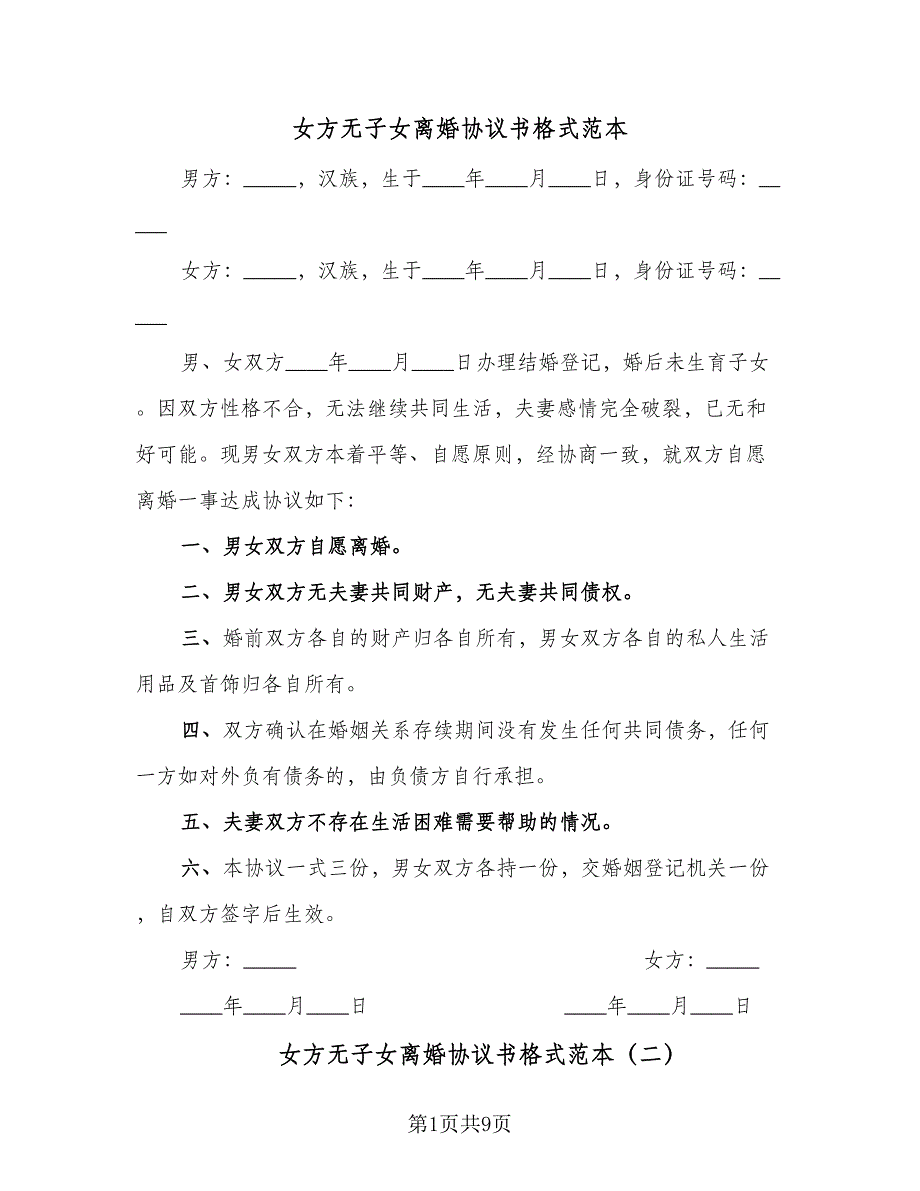 女方无子女离婚协议书格式范本
男方：_____，汉族，生于____年____月____日，身份证号码：__
___
女方：_____，汉族，生于____年____月____日，身份证号码：__
___
男、女双方____年____月____日办理结婚登记，婚后未生育子女
。因双方性格不合，无法继续共同生活，夫妻感情完全破裂，已无和
好可能。现男女双方本着平等、自愿原则，经协商一致，就双方自愿
离婚一事达成协议如下：
一、男女双方自愿离婚。
二、男女双方无夫妻共同财产，无夫妻共同债权。
三、婚前双方各自的财产归各自所有，男女双方各自的私人生活
用品及首饰归各自所有。
四、双方确认在婚姻关系存续期间没有发生任何共同债务，任何
一方如对外负有债务的，由负债方自行承担。
五、夫妻双方不存在生活困难需要帮助的情况。
六、本协议一式三份，男女双方各持一份，交婚姻登记机关一份
，自双方签字后生效。
男方：_____ 女方：_____
____年____月____日 ____年____月____日
女方无子女离婚协议书格式范本（二）
第1页共9页